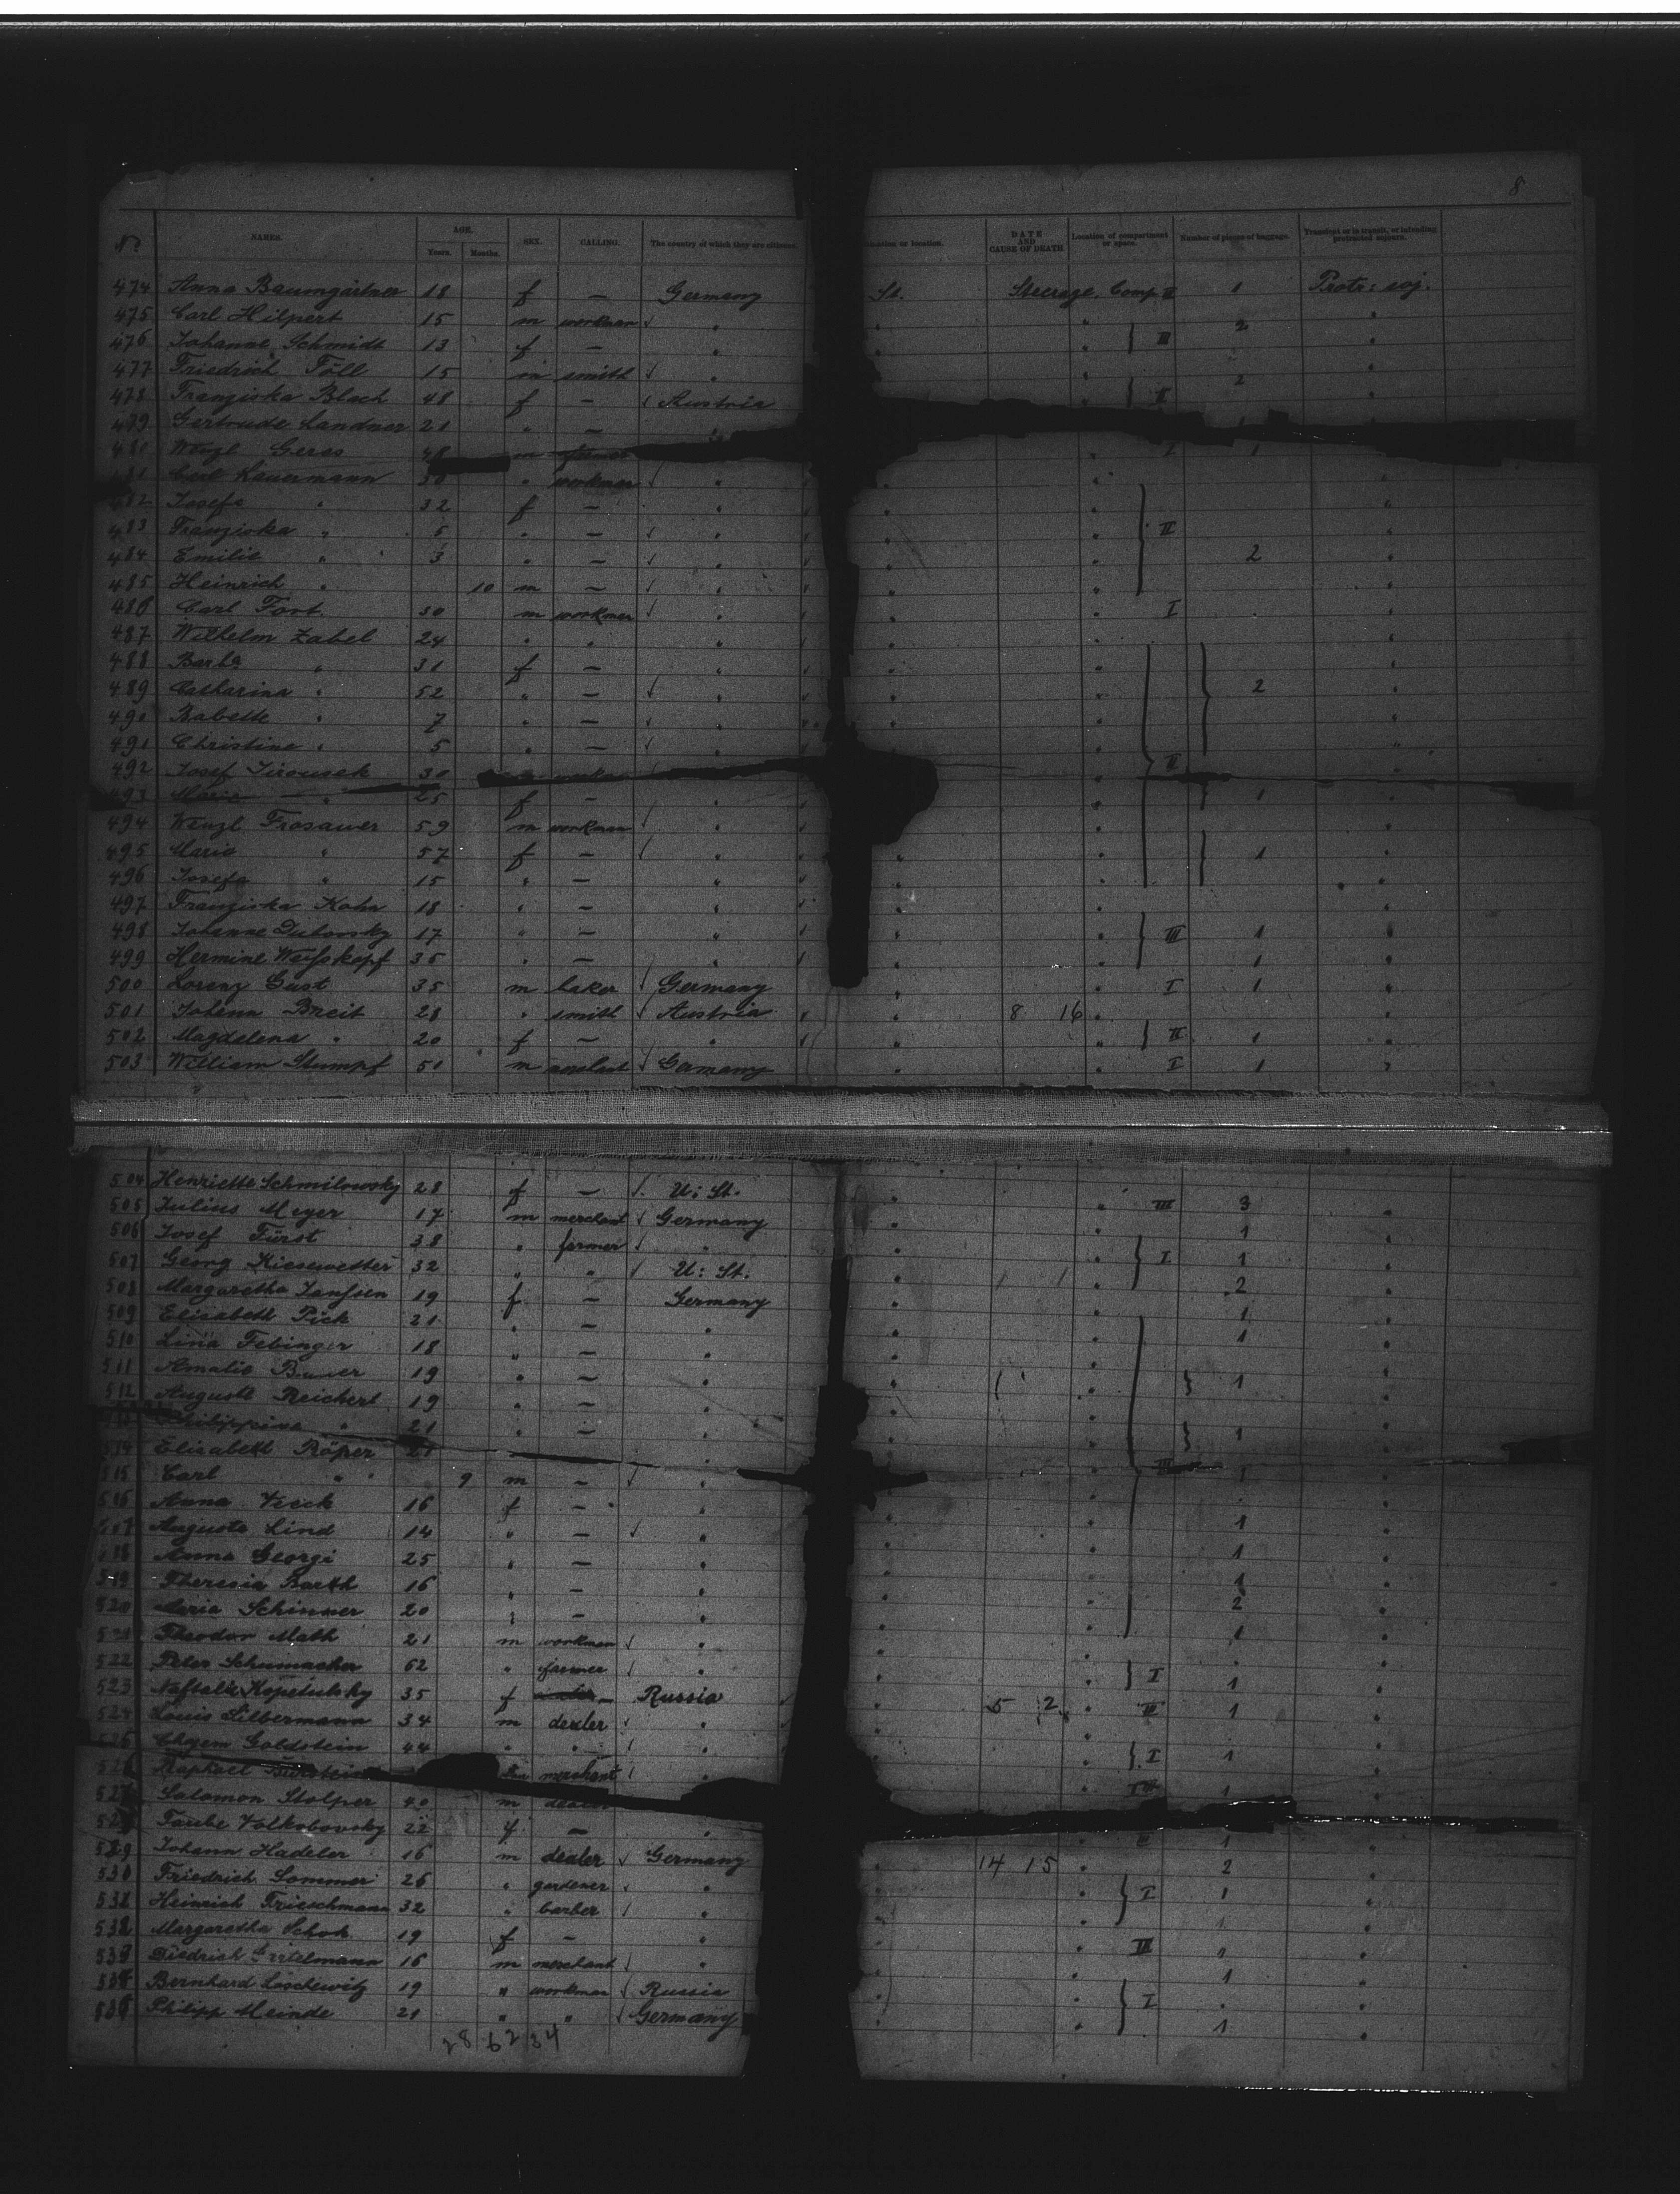 8
No NAMES. AGE. Years. Months. SEX. CALLING. The country of which they are citizens. location. DATE AND CAUSE OF DEATH Location of compartment or space. Number of pieces of baggage. Transient or in transit, or intending protracted sojourn.
474 Anna Baumgärtner 18 f — Germany St. Steerage, Comp. II 1 Protr: soj.
475 Carl Hilpert 15 m workman " 2 "
476 Johanna Schmidt 13 f — " III
477 Friedrich Föll 15 m smith " 2 "
478 Franziska Blach 48 f — Austria II
479 Gertrude Landner 21 " —
480 Wenzl Geres 48 m farmer I 1
481 Carl Lauermann 30 " workman "
482 Josefa " 32 f — "
483 Franziska " 5 " — " II
484 Emilie " 3 " — " 2
485 Heinrich " 10 m — "
486 Carl Fort 30 m workman " I
487 Wilhelm Zabel 24 " " "
488 Barba " 31 f — "
489 Catharina " 52 " — " 2
490 Babette " 7 " — "
491 Christine " 5 " — "
492 Josef Jirousek 30 II
493 Maria " 25 f — " 1
494 Wenzl Frosauer 59 m workman "
495 Maria " 57 f — " 1
496 Josefa " 15 " — "
497 Franziska Kohn 18 " — "
498 Johanna Dubovsky 17 " — " III 1
499 Hermine Weisskopf 35 " — " 1
500 Lorenz Gust 35 m baker Germany I 1
501 Johann Breit 28 " smith Austria 8 16
502 Magdelena " 20 f — " II 1
503 William Stumpf 50 m Germany I 1
504 Henriette Schmilowsky 28 f — U: St. III 3
505 Julius Meyer 17 m merchant Germany 1
506 Josef Fürst 38 " farmer " I 1
507 Georg Kiesewetter 32 " " U: St. 2
508 Margaretha Janssen 19 f — Germany 1
509 Elisabeth Pick 21 " — " 1
510 Lina Febinger 18 " — "
511 Amalia 19 " — " 1
512 Auguste Reichert 19 " — "
513 Philippine " 21 " — " 1
514 Elisabeth Röper 21 III 1
515 Carl " 9 m — "
516 Anna Veeck 16 f — " 1
517 Auguste Lind 14 " — " 1
518 Anna Georgi 25 " — " 1
519 Theresia Barth 16 " — " 2
520 Maria Schinner 20 " — " 1
521 Theodor Math 21 m workman "
522 Peter Schumacher 62 " farmer " I 1
523 Naftali Kopetulsky 35 f — Russia 5 2 III 1
524 Louis Silbermann 34 m dealer "
525 Chajem Goldstein 44 " " " I 1
526 Raphael Burstein m merchant "
527 Salomon Stolper 40 m dealer III 1
528 Taube Volkobovsky 22 f — " III 1
529 Johann Hadeler 16 m dealer Germany 14 15 2
530 Friedrich Sommer 26 " gardener " I 1
531 Heinrich Frieschmann 32 " barber " 1
532 Margaretha Schok 19 f — " III 1
533 Diedrich 16 m merchant " 1
534 Bernhard Loschewitz 19 " workman Russia I
535 Philipp Meinde 21 " " Germany 1
28 62 34